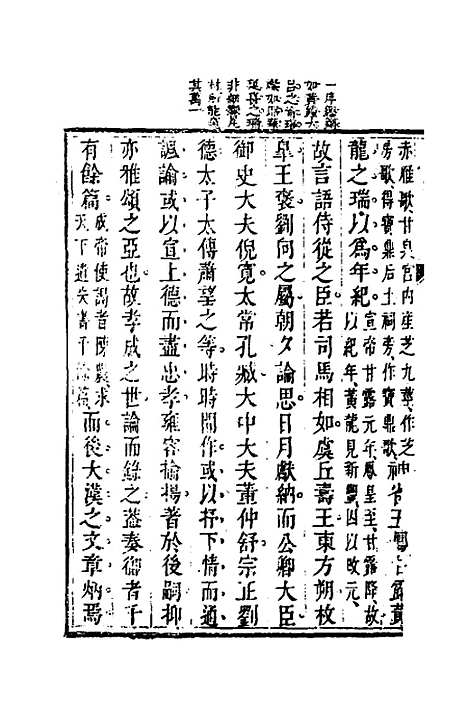 一序
如黃鍾大
呂之
其萬一
赤雁歌甘泉宮内産芝九莖作芝
房歌得寶鼎后土祠旁作寶鼎歌
神雀五鳳甘露黃
龍之瑞以為年紀
宣帝甘露元年鳳皇至甘露降故
以紀年黃龍見新豐因以改元
故言語侍從之臣若司馬相如虞丘壽王東方朔枚
皐王褒劉向之屬朝夕論思日月獻納而公卿大臣
御史大夫倪寬太常孔臧大中大夫董仲舒宗正劉
德太子太傅蕭望之等時時間作或以抒下情而通
諷諭或以宣上德而盡忠孝雍容揄揚著於後嗣抑
亦雅頌之亞也故孝成之世論而錄之葢奏御者千
有餘篇
成帝使謁者陳農求
天下遺失書千餘篇
而後大漢之文章炳焉